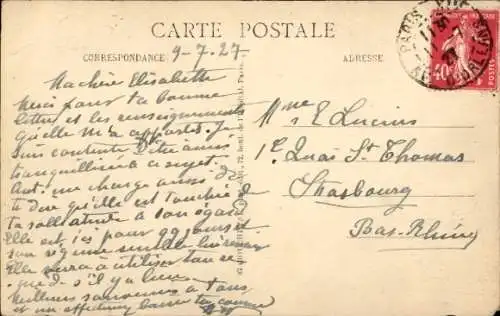 CARTE POSTALE
CORRESPONDANCE
ADRESSE
9-7.27
Ma chère Elisabette
Merci pour ta bonne
lettre et les renseignements
qu'elle m'a apportés. Je
suis contente d'être ainsi
tranquillisée à ce sujet.
me charge aussi de
te dire qu'elle est touchée
de ta sollicitude à son égard
Elle est ici pour qq jours et
son régime semble
Elle verra à utiliser ton
que s'il y a lieu.
Meilleurs souvenirs à tous
et un affectueux baiser
Mme E Lucius
1 Quai St Thomas
Strasbourg
Bas-Rhin
PARIS
40
POSTES